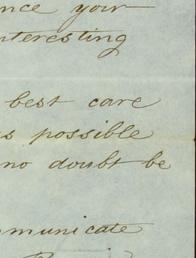 nce your
nteresting
best care
s possible
no doubt be
municate